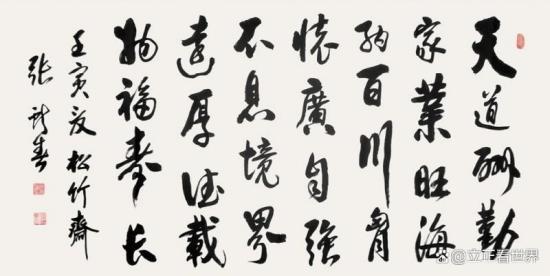 天道酬勤
家業旺海
納百川胷
懷廣自強
不息境界
遠厚德載
物福壽长
壬寅夏松竹齋
張春
@立正看世界